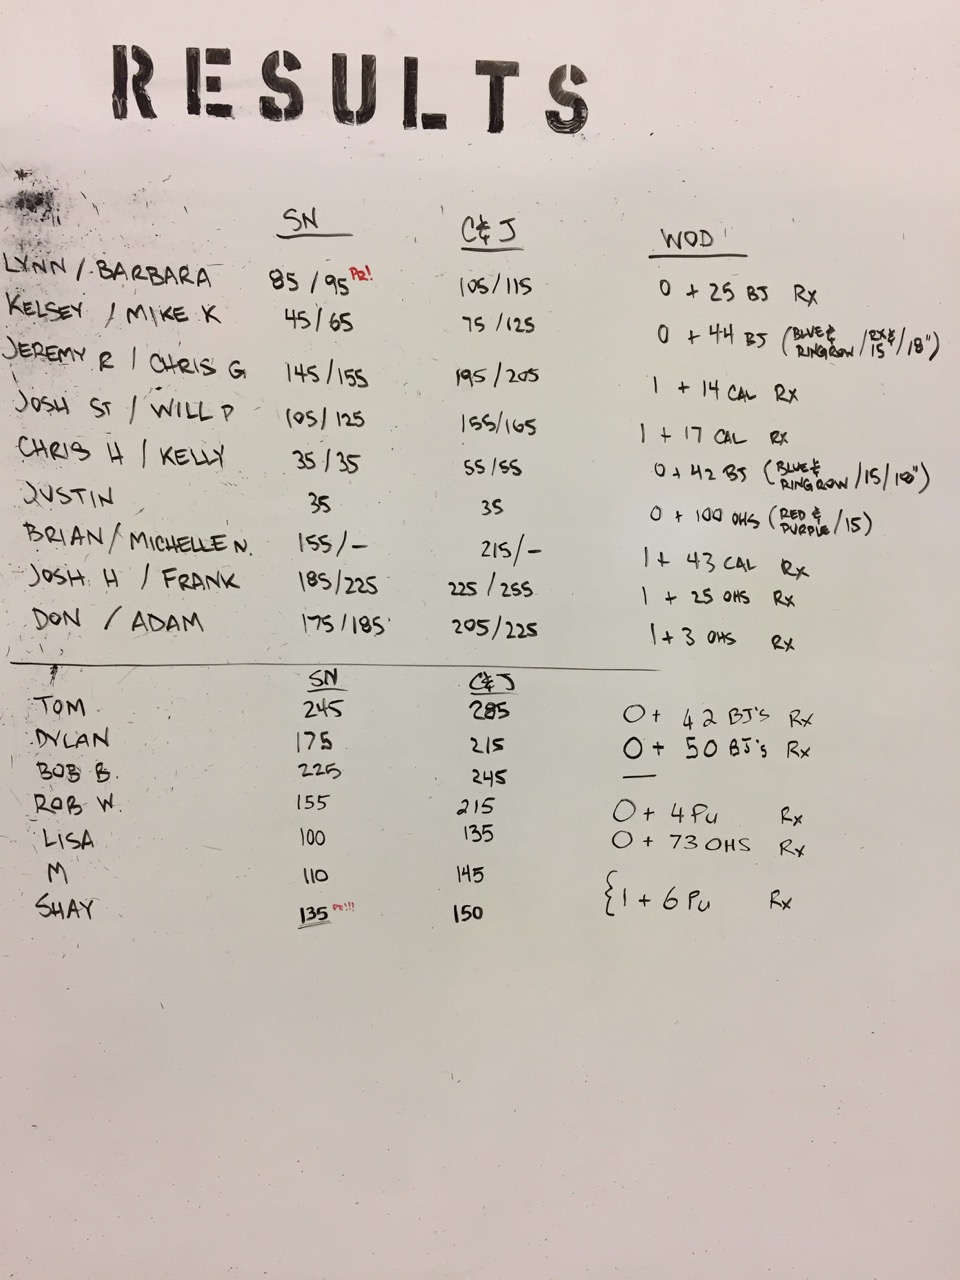 RESULTS
SN C&J WOD
LYNN / BARBARA 85/95 PR! 105/115 0 + 25 BJ Rx
KELSEY / MIKE K 45/65 75/125 0 + 44 BJ (BLUE & RINGROW / RX & 15 / 18")
JEREMY R / CHRIS G 145/155 195/205 1 + 14 CAL Rx
JOSH ST / WILL P 105/125 155/165 1 + 17 CAL Rx
CHRIS H / KELLY 35/35 55/55 0 + 42 BJ (BLUE & RINGROW / 15 / 18")
JUSTIN 35 35 0 + 100 OHS (RED & PURPLE / 15)
BRIAN / MICHELLE N. 155/- 215/- 1 + 43 CAL Rx
JOSH H / FRANK 185/225 225/255 1 + 25 OHS Rx
DON / ADAM 175/185 205/225 1 + 3 OHS Rx
SN C&J
TOM 245 285 0 + 42 BJ's Rx
DYLAN 175 215 0 + 50 BJ's Rx
BOB B. 225 245 —
ROB W. 155 215 0 + 4 PU Rx
LISA 100 135 0 + 73 OHS Rx
M 110 145
SHAY 135 PR!!! 150 {1 + 6 PU Rx